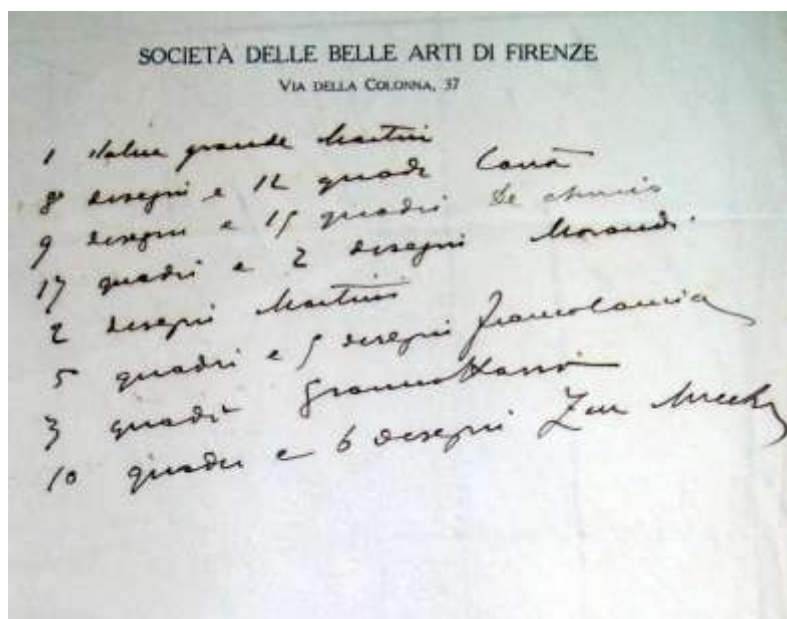 SOCIETÀ DELLE BELLE ARTI DI FIRENZE
VIA DELLA COLONNA, 37
1 statue grande Martini
8 disegni e 12 quadri Carrà
9 disegni e 15 quadri De Chirico
17 quadri e 2 disegni Morandi
2 disegni Martini
5 quadri e 5 disegni Francalancia
3 quadri
10 quadri e 6 disegni Zur Muehlen